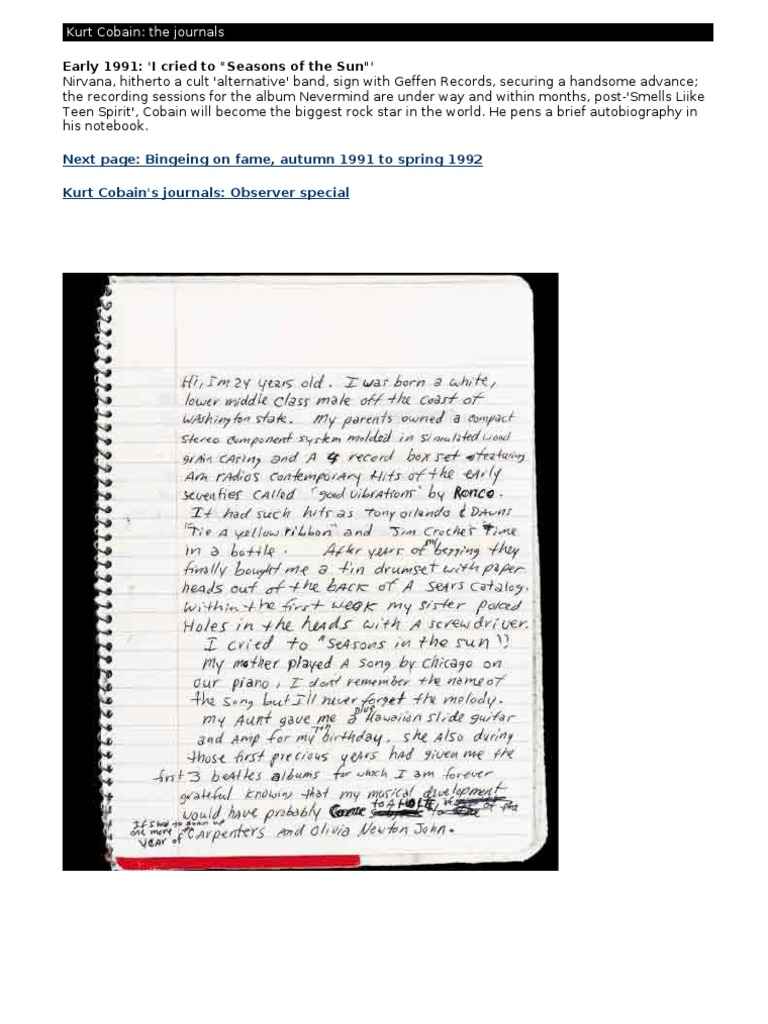 Kurt Cobain: the journals
Early 1991: 'I cried to "Seasons of the Sun"'
Nirvana, hitherto a cult 'alternative' band, sign with Geffen Records, securing a handsome advance;
the recording sessions for the album Nevermind are under way and within months, post-'Smells Liike
Teen Spirit', Cobain will become the biggest rock star in the world. He pens a brief autobiography in
his notebook.
Next page: Bingeing on fame, autumn 1991 to spring 1992
Kurt Cobain's journals: Observer special
Hi, I'm 24 years old. I was born a white,
lower middle class male off the coast of
Washington state. My parents owned a compact
stereo component system molded in simulated wood
grain casing and a 4 record box set featuring
Am radios contemporary Hits of the early
seventies called "good vibrations" by Ronco.
It had such hits as Tony orlando & Dawns
"Tie A yellow ribbon" and Jim Croche's Time
in a bottle. After years of my begging they
finally bought me a tin drumset with paper
heads out of the back of A Sears Catalog.
Within the first week my sister poked
Holes in the heads with A screwdriver.
I cried to "Seasons in the sun"!
My mother played A song by Chicago on
our piano, I dont remember the name of
the song but I'll never forget the melody.
my Aunt gave me a blue Hawaiian slide guitar
and Amp for my 7th birthday. she Also during
those first precious years had given me the
first 3 beatles albums for which I am forever
grateful knowing that my musical development
would have probably Come to A HOLT
If I had to soak up
one more
year of Carpenters And Olivia Newton John.